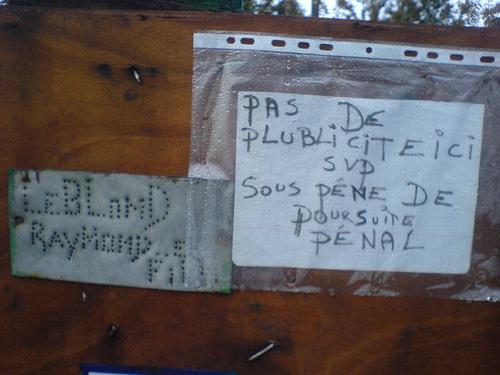 LEBLAND
RAYMOND &
FILS
PAS DE
PLUBLICITE ICI
SVP
SOUS PÉNE DE
POURSUITE
PÉNAL